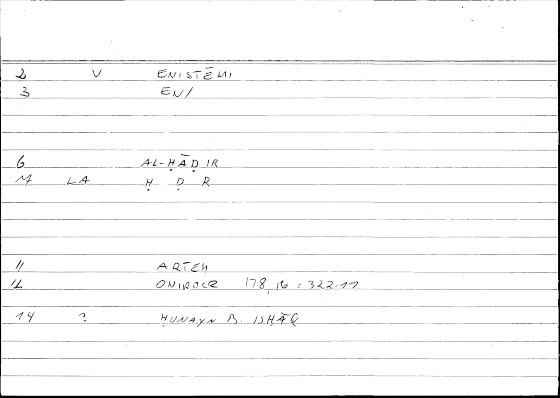 2 V ENISTĒMI
3 EN/
6 AL-ḤĀḌIR
M LA Ḥ Ḍ R
11 ARTEM
12 ONIROCR 178,16 = 322.11
14 ? ḤUNAYN B. ISḤĀQ